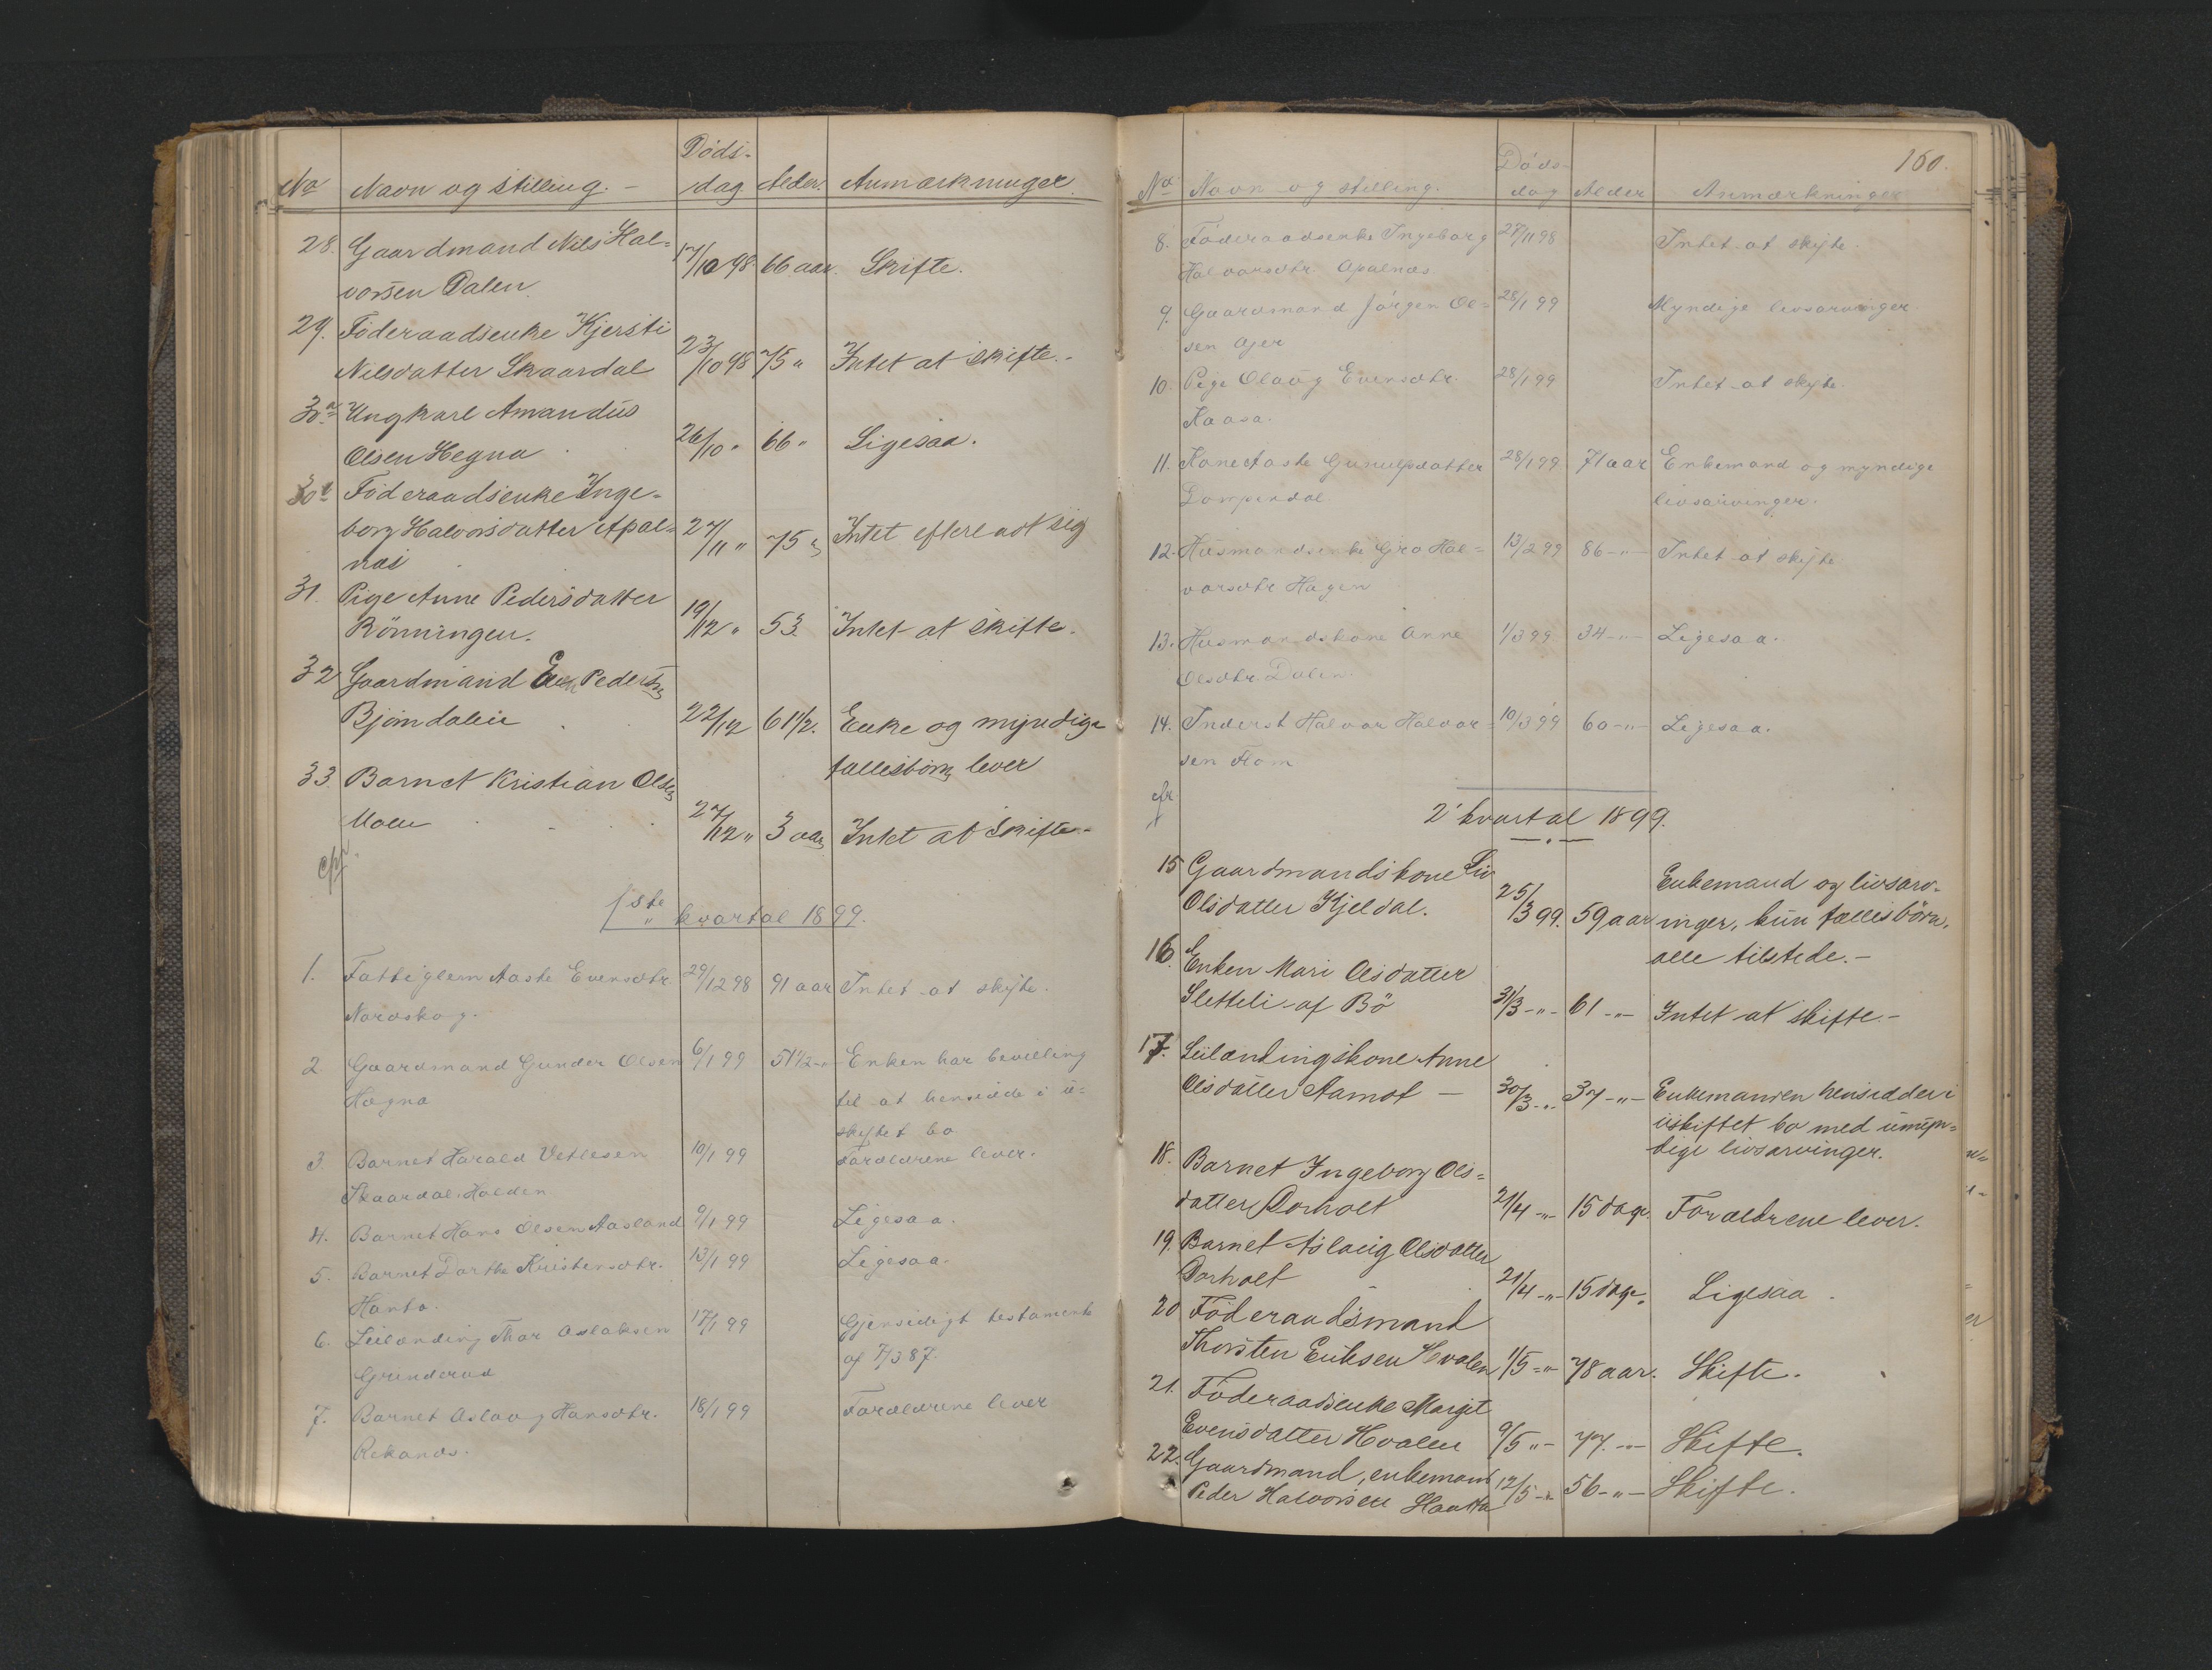 Döds-
No Navn og stilling. - dag Alder. Anmærkninger.
28. Gaardmand Nils Hal-
vorsen Dalen 17/10 98. 66 aar. Skifte.
29. Föderaadsenke Kjersti
Nilsdatter Skaardal 23/10 98 75 " Intet at skifte. -
30a Ungkarl Amandus
Olsen Hegna 26/10 " 66 " Ligesaa.
30b Föderaadsenke Inge-
borg Halvorsdatter Apal- 27/11 " 75 " Intet efterladt sig
næs
31. Pige Anne Pedersdatter
Rönningen. 19/12 " 53. Intet at skifte.
32 Gaardmand Even Pedersen
Bjórndalen 22/12 61 1/2. Enke og myndige
fællesbörn lever
33. Barnet Kristian Olsen
Moen 27/12 " 3 aar Intet at skifte. -
1ste kvartal 1899.
1. Fattiglem Aaste Evensdtr. 29/12 98 91 aar Intet at skifte.
Nordskog.
2. Gaardmand Gunder Olsen 6/1 99 51 1/2 -"- Enken har bevilling
Hagna til at hensidde i u-
skiftet bo
3. Barnet Harald Vetlesen 10/1 99 Forældrene lever.
Skaardal. Holden
4. Barnet Hans Olsen Aasland 9/1 99 Ligesaa.
5. Barnet Dorthe Kristensdtr. 13/1 99 Ligesaa.
Hanto.
6. Leilænding Thor Aslaksen 17/1 99 Gjensidigt testamente
Grunderud af 7/3 87.
7. Barnet Aslaug Hansdtr. 18/1 99 Forældrene lever
Rekanes.
160.
Döds-
No Navn og stilling. dag Alder Anmærkninger
8. Föderaadsenke Ingeborg 27/11 98 Intet at skifte.
Halvorsdtr. Apalnæs.
9. Gaardmand Jörgen Ol- 28/1 99 Myndige livsarvinger
sen Ajer
10. Pige Olaug Evensdtr. 28/1 99 Intet at skifte.
Kaasa.
11. Kone Aaste Gunulfsdatter 28/1 99 71 aar Enkemand og myndige
Lampendal livsarvinger.
12. Husmandsenke Gro Hal- 13/2 99 86 -"- Intet at skifte.
vorsdtr Hagen
13. Husmandskone Anne 1/3 99 34 -"- Ligesaa.
Olsdtr. Dalen.
14. Inderst Halvor Halvor- 10/3 99 60 -"- Ligesaa.
sen Flom
cfr
2' kvartal 1899.
15 Gaardmandskone Liv
Olsdatter Kjeldal. 25/3 99. 59 aar Enkemand og livsarv-
inger, kun fællesbörn,
alle tilstede. -
16. Enken Mari Olsdatter
Sletteli af Bö 31/3 -"- 61 -"- Intet at skifte. -
17. Leilændingskone Anne
Olsdatter Aamot - 30/3 -"- 37 -"- Enkemanden hensidder i
uskiftet bo med umyn-
dige livsarvinger.
18. Barnet Ingeborg Ols-
datter Dorholt 21/4 -"- 15 dage. Forældrene lever.
19. Barnet Aslaug Olsdatter
Dorholt 21/4 -"- 15 dage. Ligesaa.
20 Föderaadsmand
Thorsten Eriksen Hvalen 1/5 -"- 78 aar. Skifte.
21. Föderaadsenke Margit
Evensdatter Hvalen 9/5 "- 77. -"- Skifte.
22. Gaardmand, enkemand
Peder Halvorsen Haatta 12/5 -"- 56 -"- Skifte.